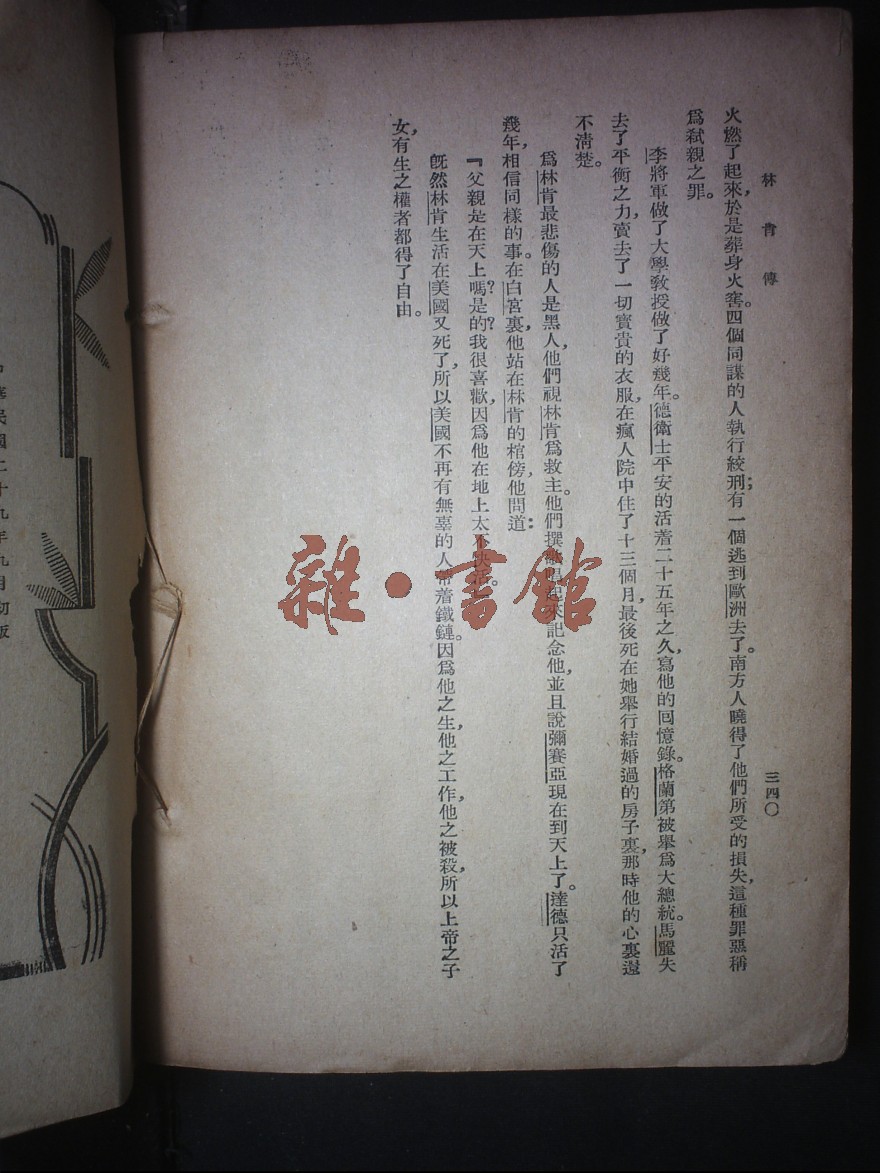 林肯傳
三四〇
火燃了起來，於是葬身火窖。四個同謀的人執行絞刑；有一個逃到歐洲去了。南方人曉得了他們所受的損失，這種罪惡稱
爲弒親之罪。
李將軍做了大學敎授做了好幾年。德衛士平安的活着二十五年之久，寫他的回憶錄。格蘭第被舉爲大總統。馬麗失
去了平衡之力，賣去了一切寶貴的衣服，在瘋人院中住了十三個月，最後死在她舉行結婚過的房子裏，那時他的心裏還
不淸楚。
爲林肯最悲傷的人是黑人，他們視林肯爲救主。他們撰歌唱起來記念他，並且說彌賽亞現在到天上了。達德只活了
幾年，相信同樣的事。在白宮裏，他站在林肯的棺傍，他問道：
『父親是在天上嗎？是的？我很喜歡，因爲他在地上太不快活。
旣然林肯生活在美國又死了，所以美國不再有無辜的人帶着鐵鏈。因爲他之生，他之工作，他之被殺，所以上帝之子
女，有生之權者都得了自由。
民國二十九年九月初版
雜·書館